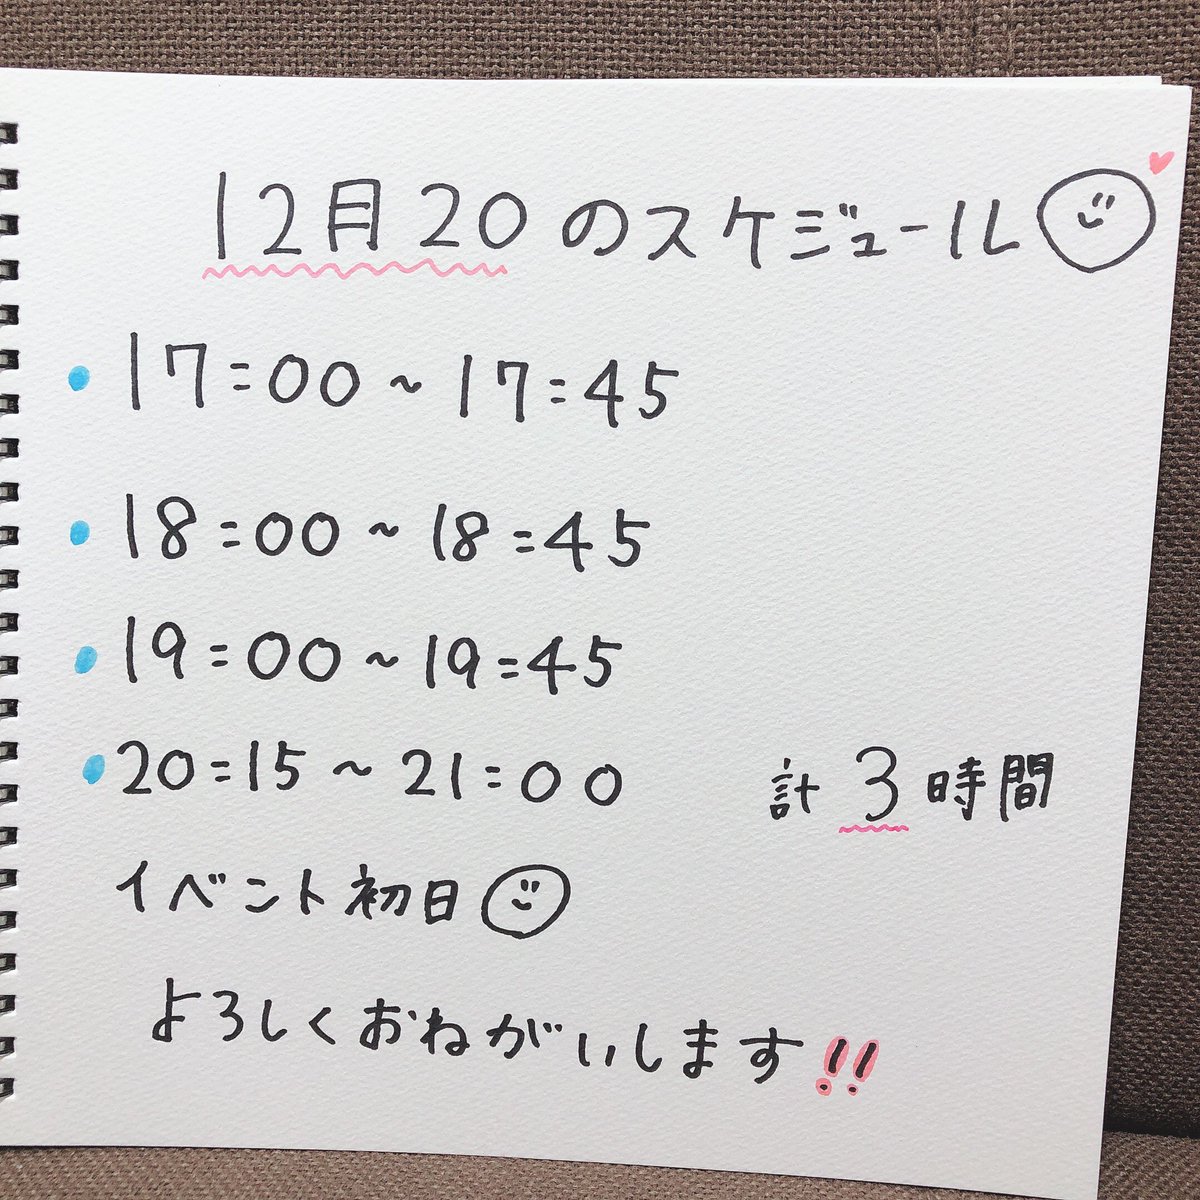 12月20のスケジュール
17:00~17:45
18:00~18:45
19:00~19:45
20:15~21:00 計3時間
イベント初日
よろしくおねがいします!!